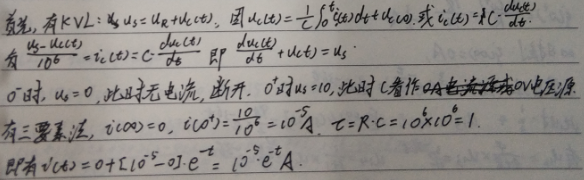 首先, 有KVL: u_s = u_R + u_c(t). 因 u_c(t) = 1/C ∫₀ᵗ i(t)dt + u_c(0). 或 i_c(t) = C·du_c(t)/dt.
有 (u_s - u_c(t))/10⁶ = i_c(t) = C·du_c(t)/dt 即 du_c(t)/dt + u_c(t) = u_s.
0⁻时, u_s=0, 此时无电流, 断开. 0⁺时 u_s=10, 此时C看作 0V电压源
有三要素法, i(∞)=0, i(0⁺)=10/10⁶=10⁻⁵A. τ=R·C=10⁶×10⁻⁶=1.
即有 i(t)=0+[10⁻⁵-0]·e⁻ᵗ=10⁻⁵·e⁻ᵗ A.